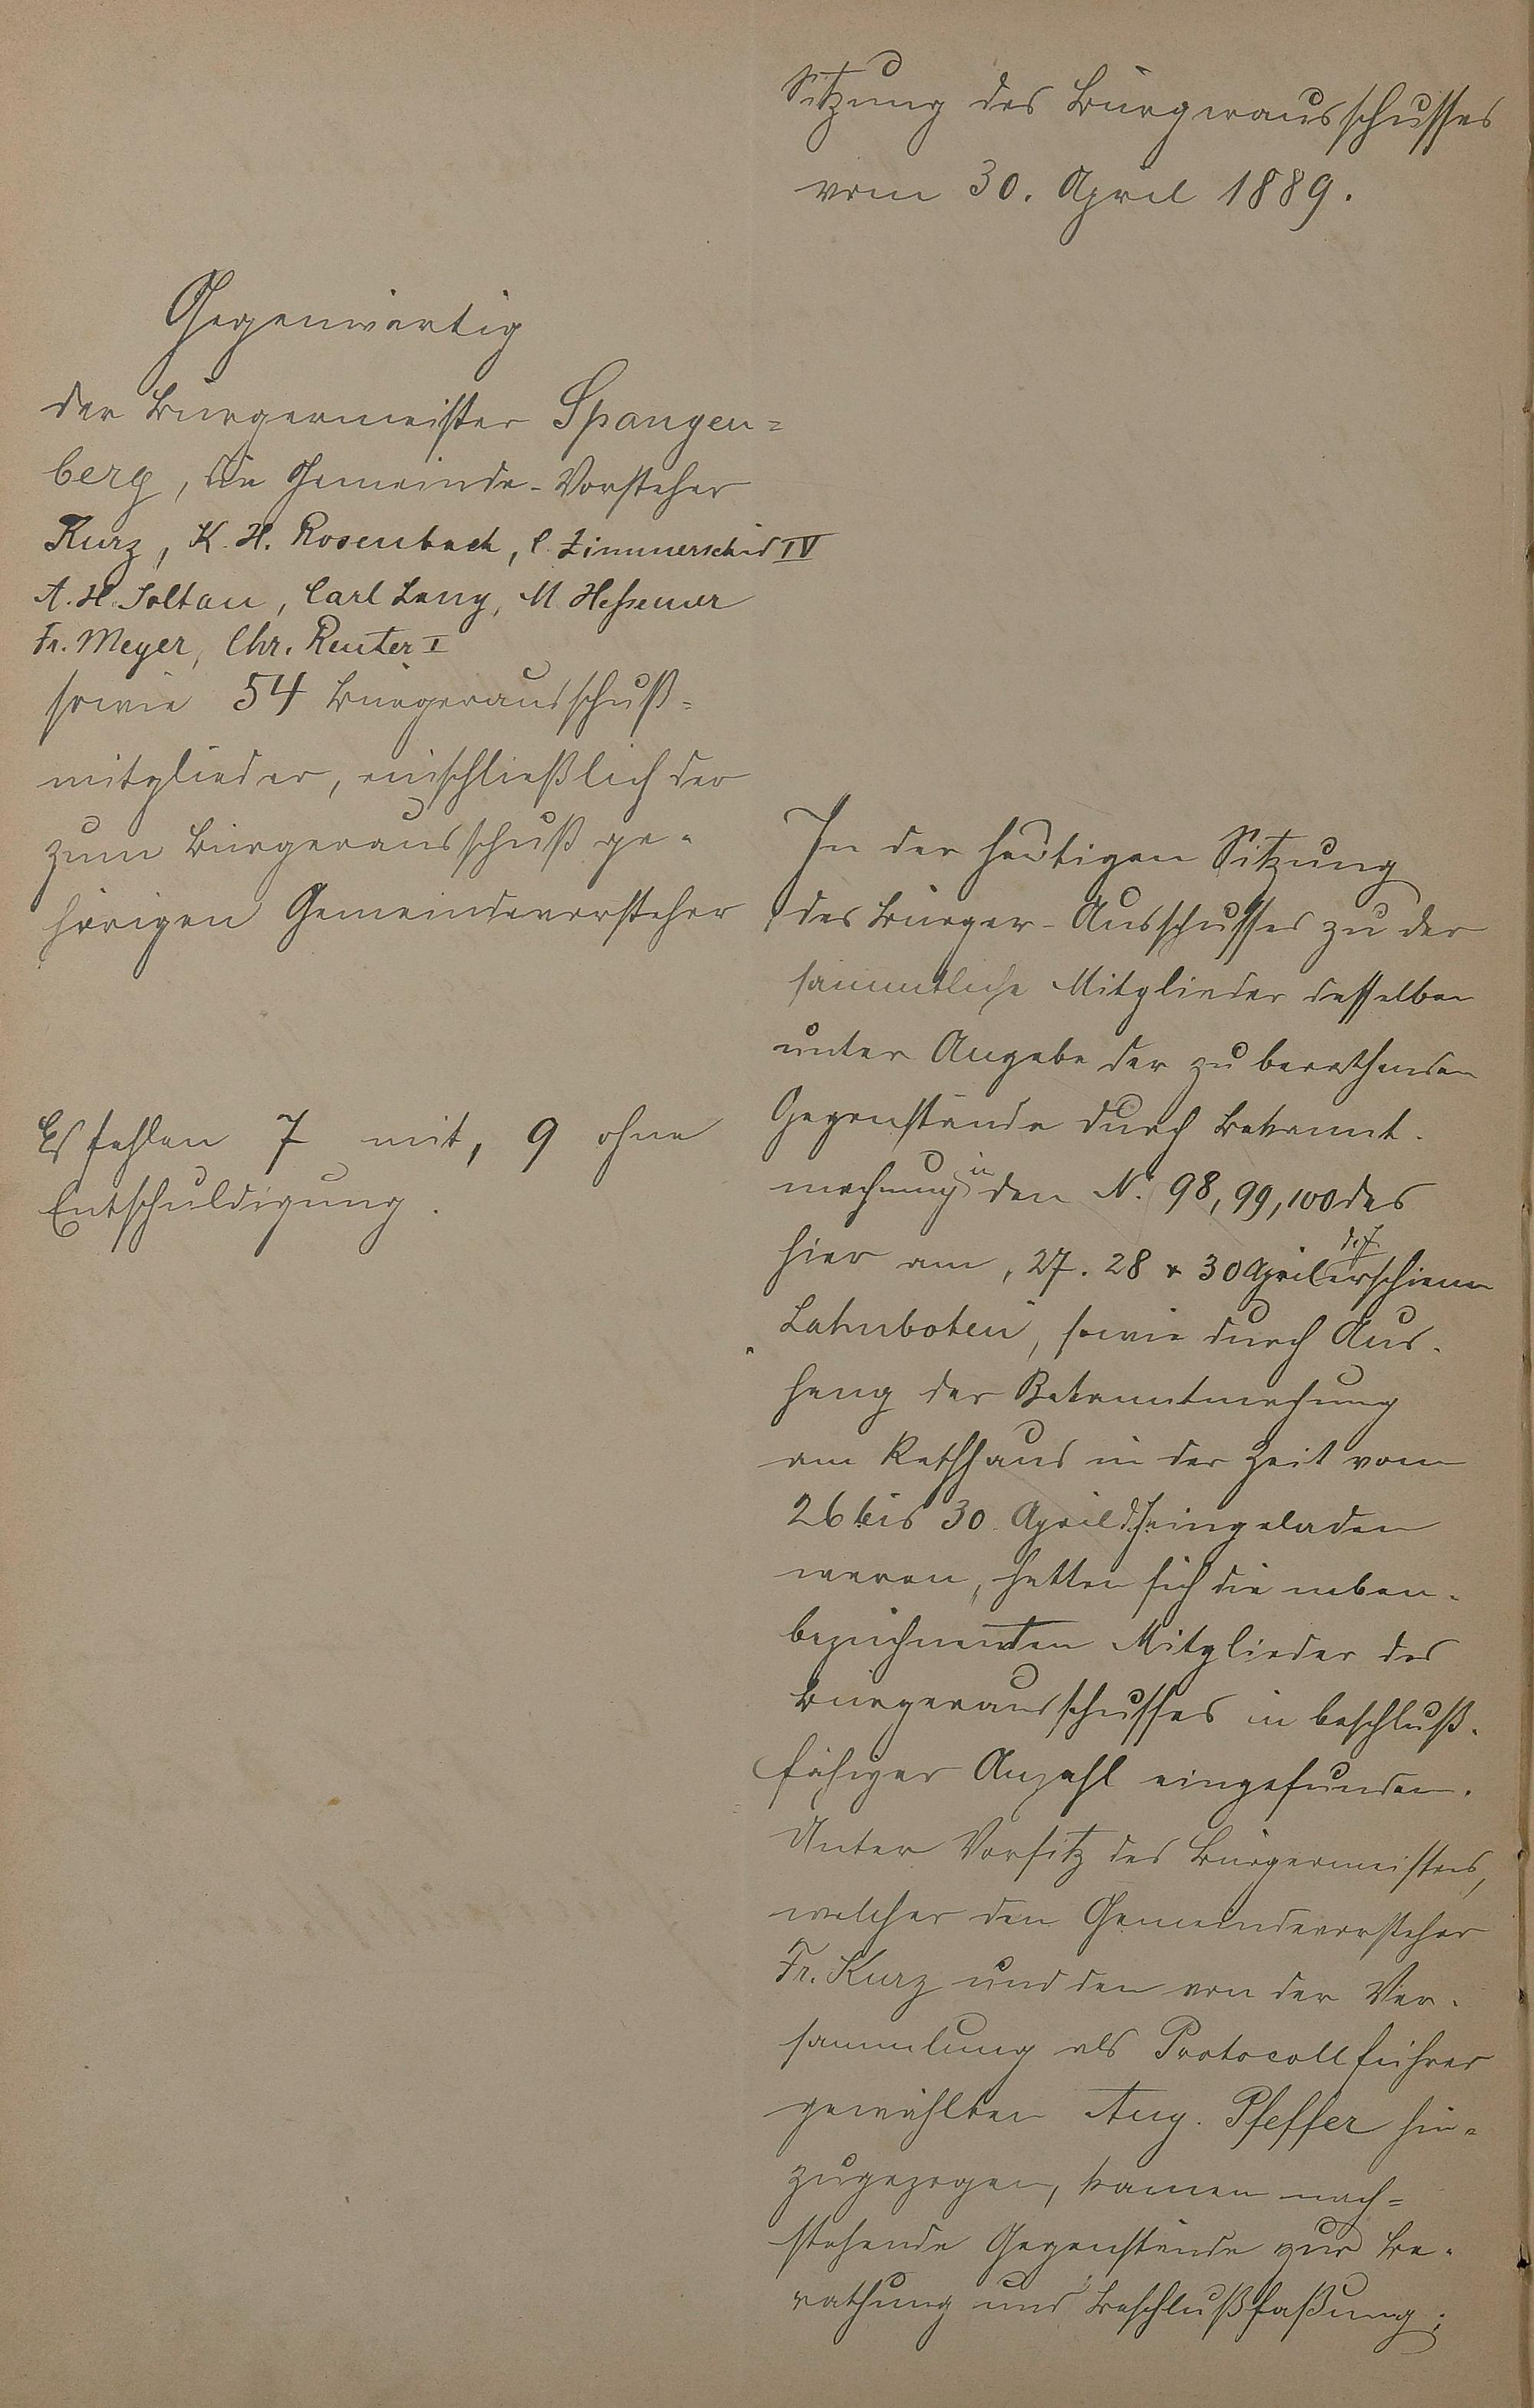 Sitzung des Bürgerausschusses
vom 30. April 1889.
Gegenwärtig
der Bürgermeister Spangen=
berg, die Gemeinde-Vorsteher
Kurz, K. H. Rosenbach, C. Zimmerschid IV
A. H. Soltau, Carl Lany, M. Hessemer
Fr. Meyer, Chr. Reuter I
sowie 54 Bürgerausschuß=
mitglieder, einschließlich der
zum Bürgerausschuß ge=
hörigen Gemeindevorsteher
Es fehlen 7 mit, 9 ohne
Entschuldigung.
In der heutigen Sitzung
des Bürger-Ausschusses zu der
sämmtliche Mitglieder desselben
unter Angabe der zu berathenden
Gegenstände durch Bekannt-
machung in den N. 98, 99, 100 des
hier am, 27. 28 & 30 April d. J. erschienen
Lahnboten, sowie durch Aus-
hang der Bekanntmachung
am Rathhaus in der Zeit vom
26 bis 30. April d. J. eingeladen
waren, hatten sich die neben-
bezeichneten Mitglieder des
Bürgerausschusses in beschluß-
fähiger Anzahl eingefunden.
Unter Vorsitz des Bürgermeisters,
welcher den Gemeindevorsteher
Fr. Kurz und den von der Ver-
sammlung als Protocollführer
gewählten Aug. Pfeffer hin=
zugezogen, kamen nach=
stehende Gegenstände zur Be-
rathung und Beschlußfaßung: